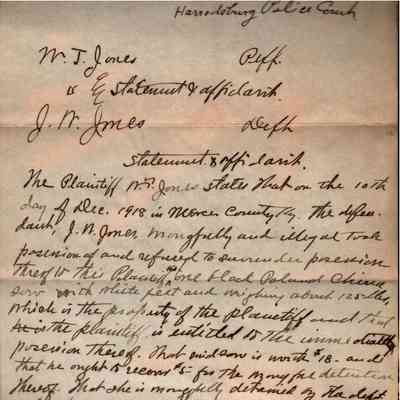 Harrodsburg Police Court
W. T. Jones Peff.
vs Statement & affidavit.
J. W. Jones Deft
Statement & affidavit.
The Plaintiff W.T. Jones states that on the 10th
day of Dec. 1918 in Mercer County Ky. the defen-
dant, J. W. Jones, wrongfully and illegal took
possession of and refused to surrender possession
thereof to this Plaintiff one black Poland China
sow with white feet and weighing about 125 lbs,
which is the property of the plaintiff and that
the plaintiff is entitled to the immediately
possession thereof. That said sow is worth $18- and
that he ought to recover $5- for the wrongful detention
thereof. That she is wrongfully detained by the deft